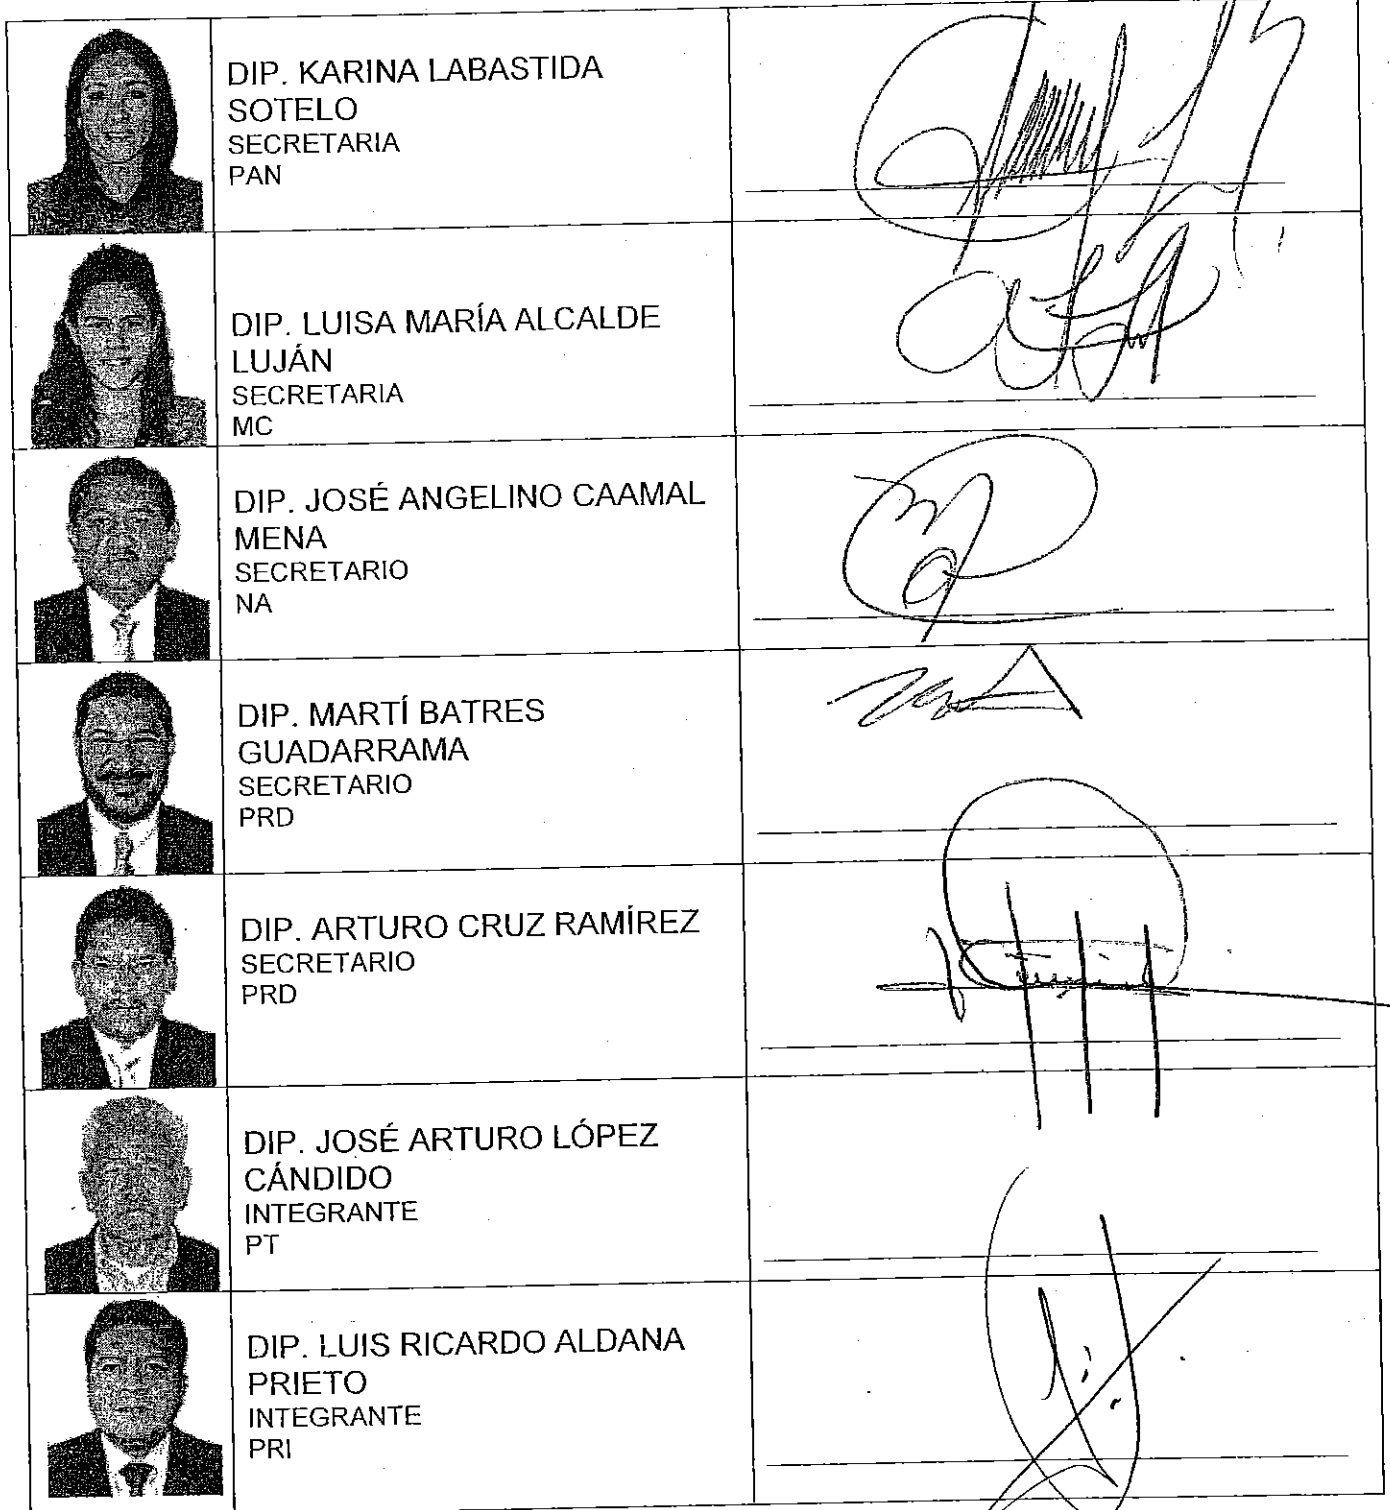 DIP. KARINA LABASTIDA
SOTELO
SECRETARIA
PAN
DIP. LUISA MARÍA ALCALDE
LUJÁN
SECRETARIA
MC
DIP. JOSÉ ANGELINO CAAMAL
MENA
SECRETARIO
NA
DIP. MARTÍ BATRES
GUADARRAMA
SECRETARIO
PRD
DIP. ARTURO CRUZ RAMÍREZ
SECRETARIO
PRD
DIP. JOSÉ ARTURO LÓPEZ
CÁNDIDO
INTEGRANTE
PT
DIP. LUIS RICARDO ALDANA
PRIETO
INTEGRANTE
PRI